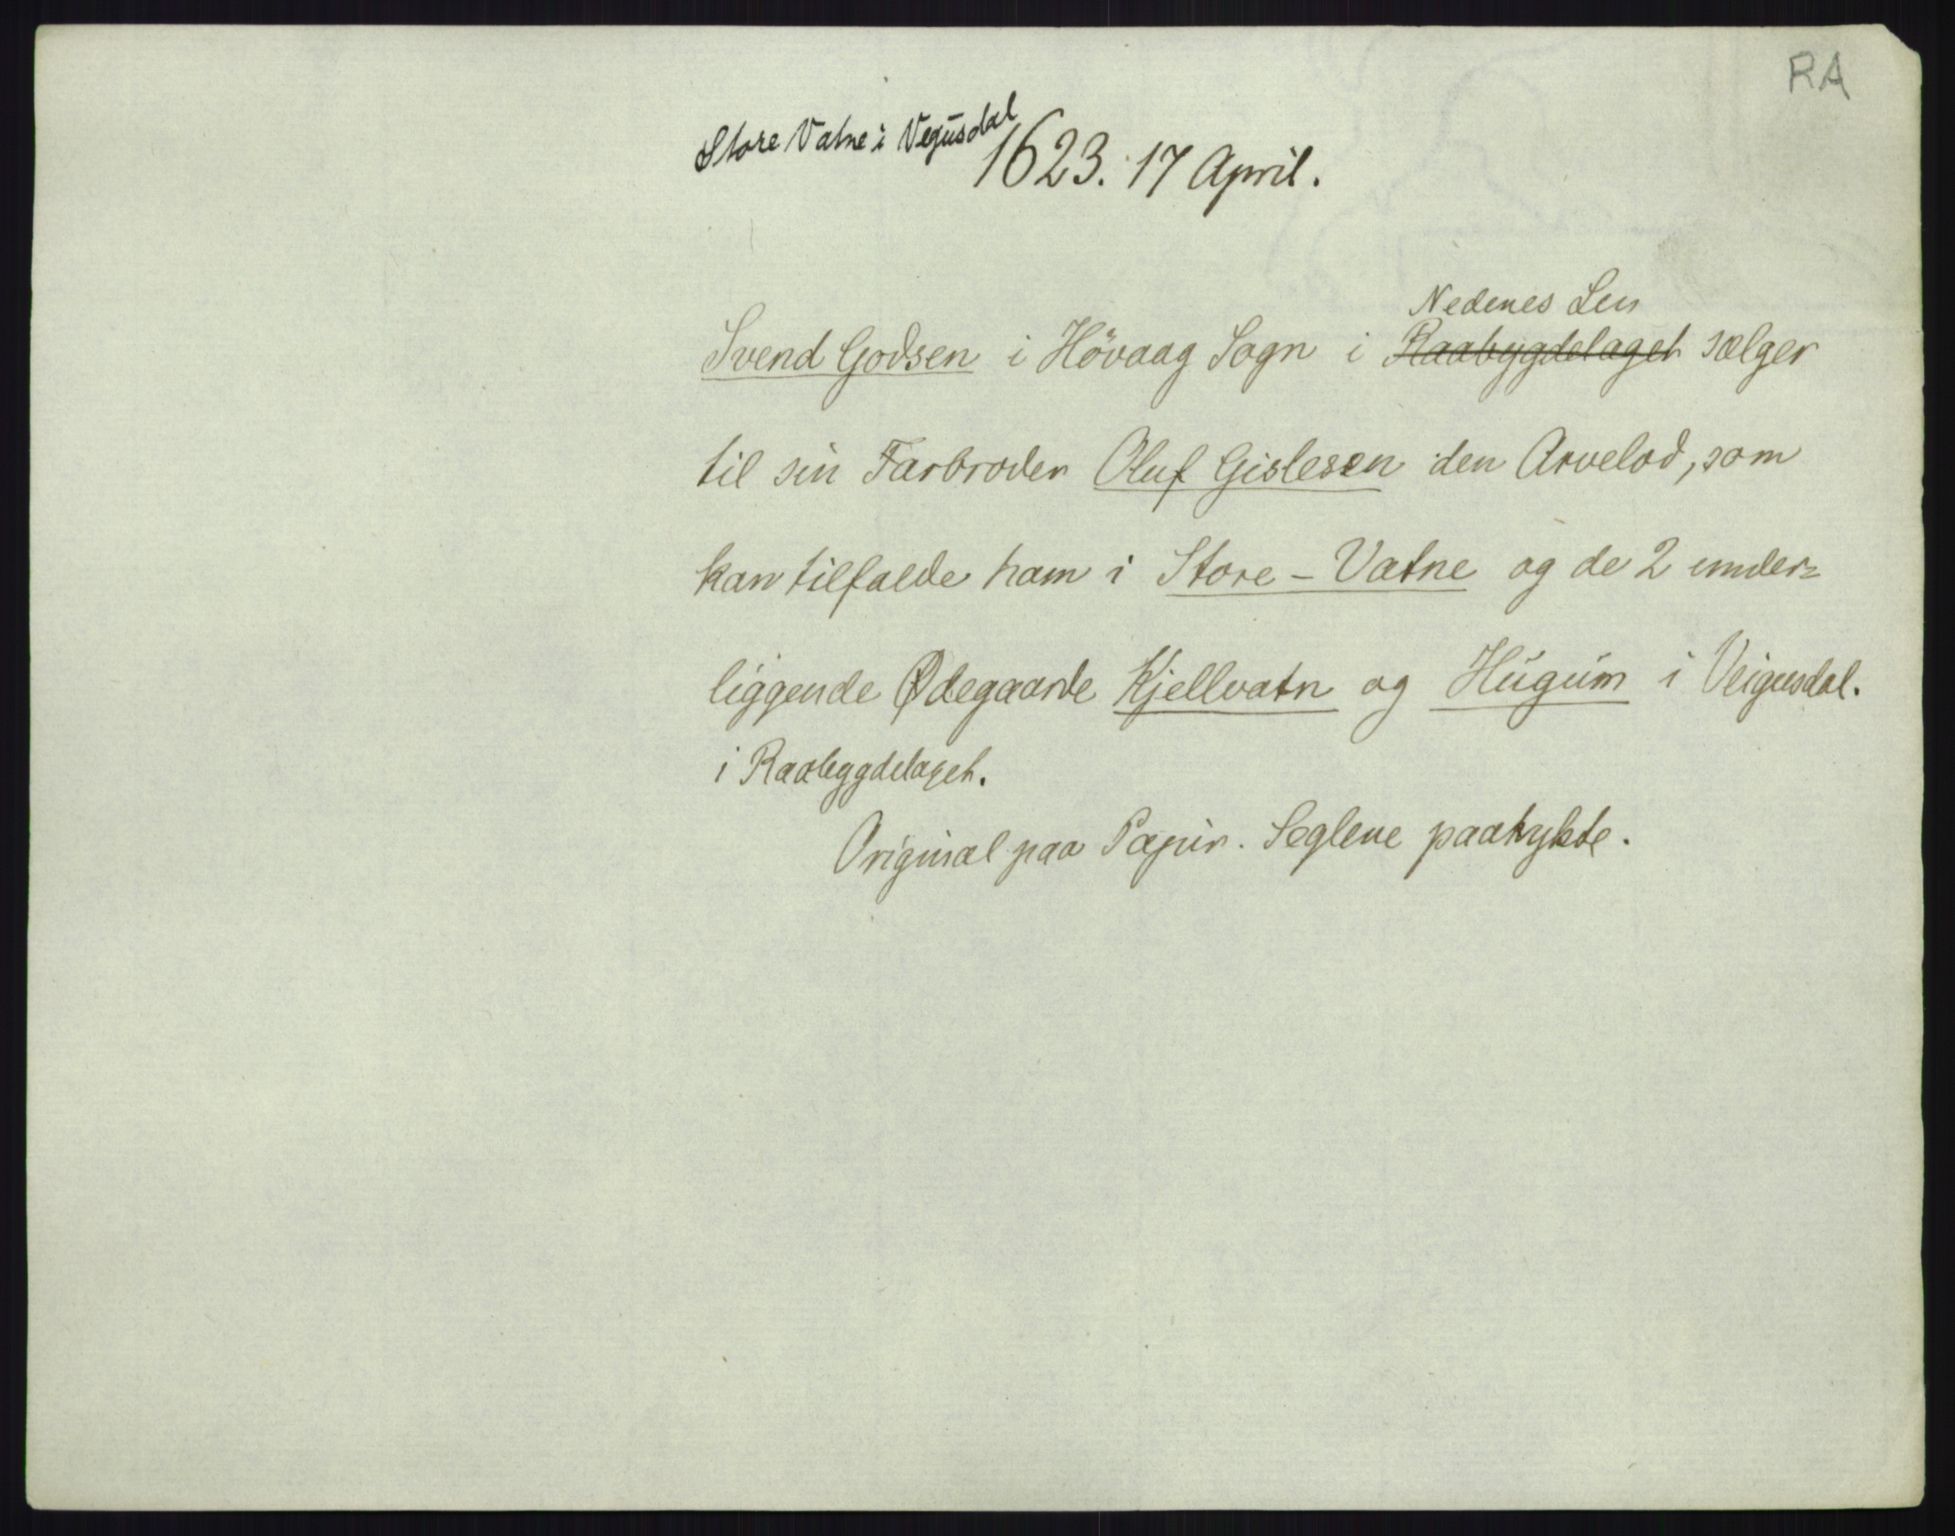 RA
Store Vatne i Vegusdal
1623. 17 April.
Nedenes Len
Svend Godsen i Hövaag Sogn i Raabygdelaget sælger
til sin Farbroder Oluf Gislesen den Arvelod, som
kan tilfalde ham i Store-Vatne og de 2 under=
liggende Ødegaarde Kjellvatn og Hugum i Veigusdal.
i Raabygdelaget.
Original paa Papir. Seglene paatrykte.